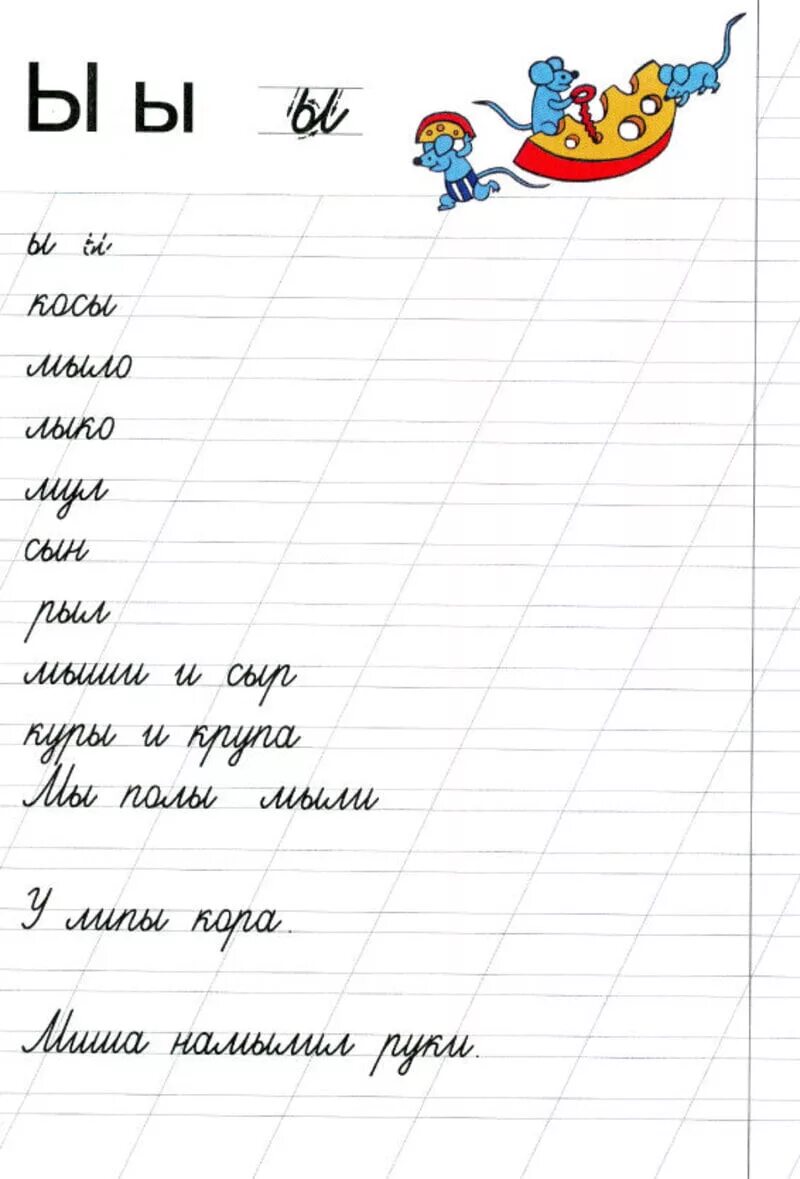 Ы ы ы
ы ы
косы
мыло
лыко
мул
сын
рыл
мыши и сыр
куры и крупа
Мы полы мыли
У липы кора.
Миша намылил руки.